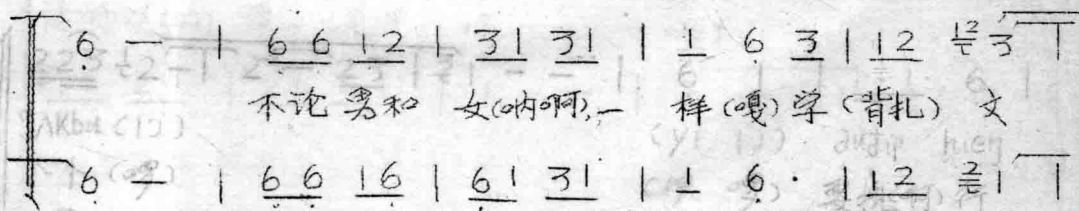 6 — | 6 6 1 2 | 3 1 3 1 | 1 6 3 | 1 2 12 3 1
不论 男和 女(呐啊),一 样(嘎)学(背扎) 文
6 — | 6 6 1 6 | 6 1 3 1 | 1 6 · | 1 2 2 1 1